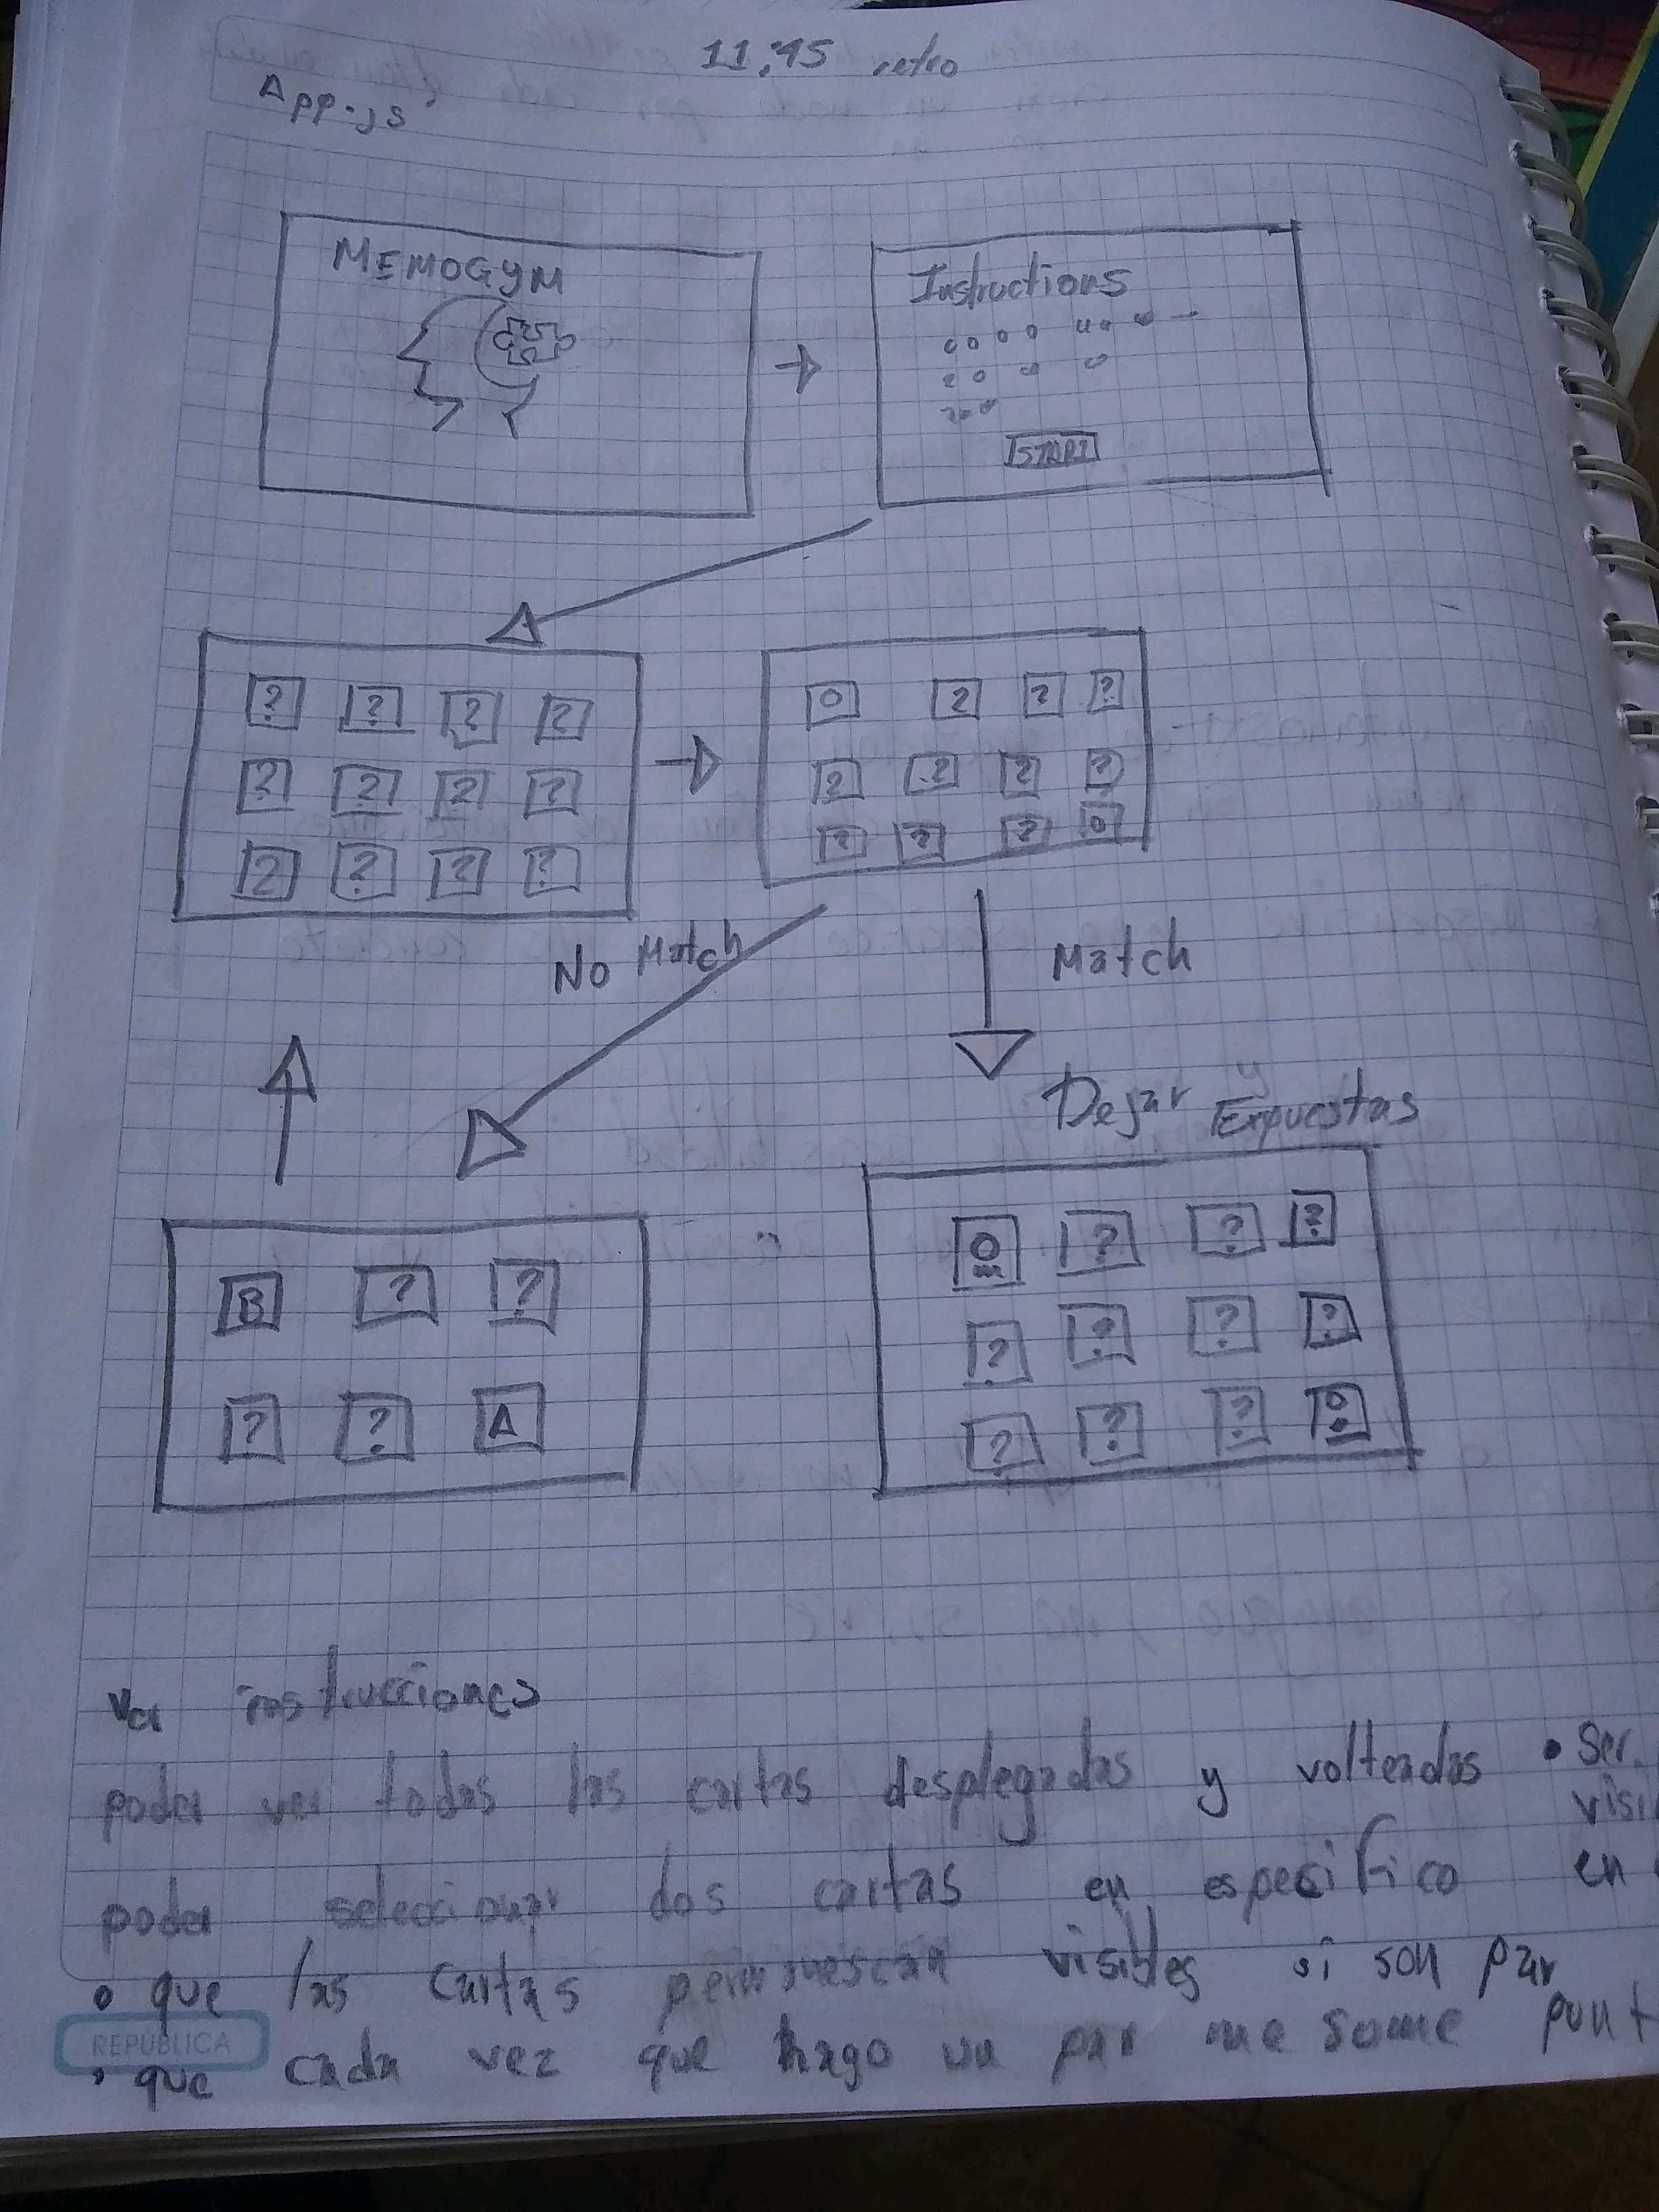 11:45 retro
App.js
MEMOGYM
Instructions
START
? ? ? ?
? ? ? ?
? ? ? ?
O ? ? ?
? ? ? ?
? ? ? O
No Match
Match
Dejar Expuestas
B ? ?
? ? A
O ? ? ?
? ? ? ?
? ? ? O
Ver instrucciones
poder ver todas las cartas desplegadas y volteadas
• Ser
poder seleccionar dos cartas en especifico
en
• que las cartas permanescan visibles si son par
• que cada vez que hago un par me sume punt
REPUBLICA